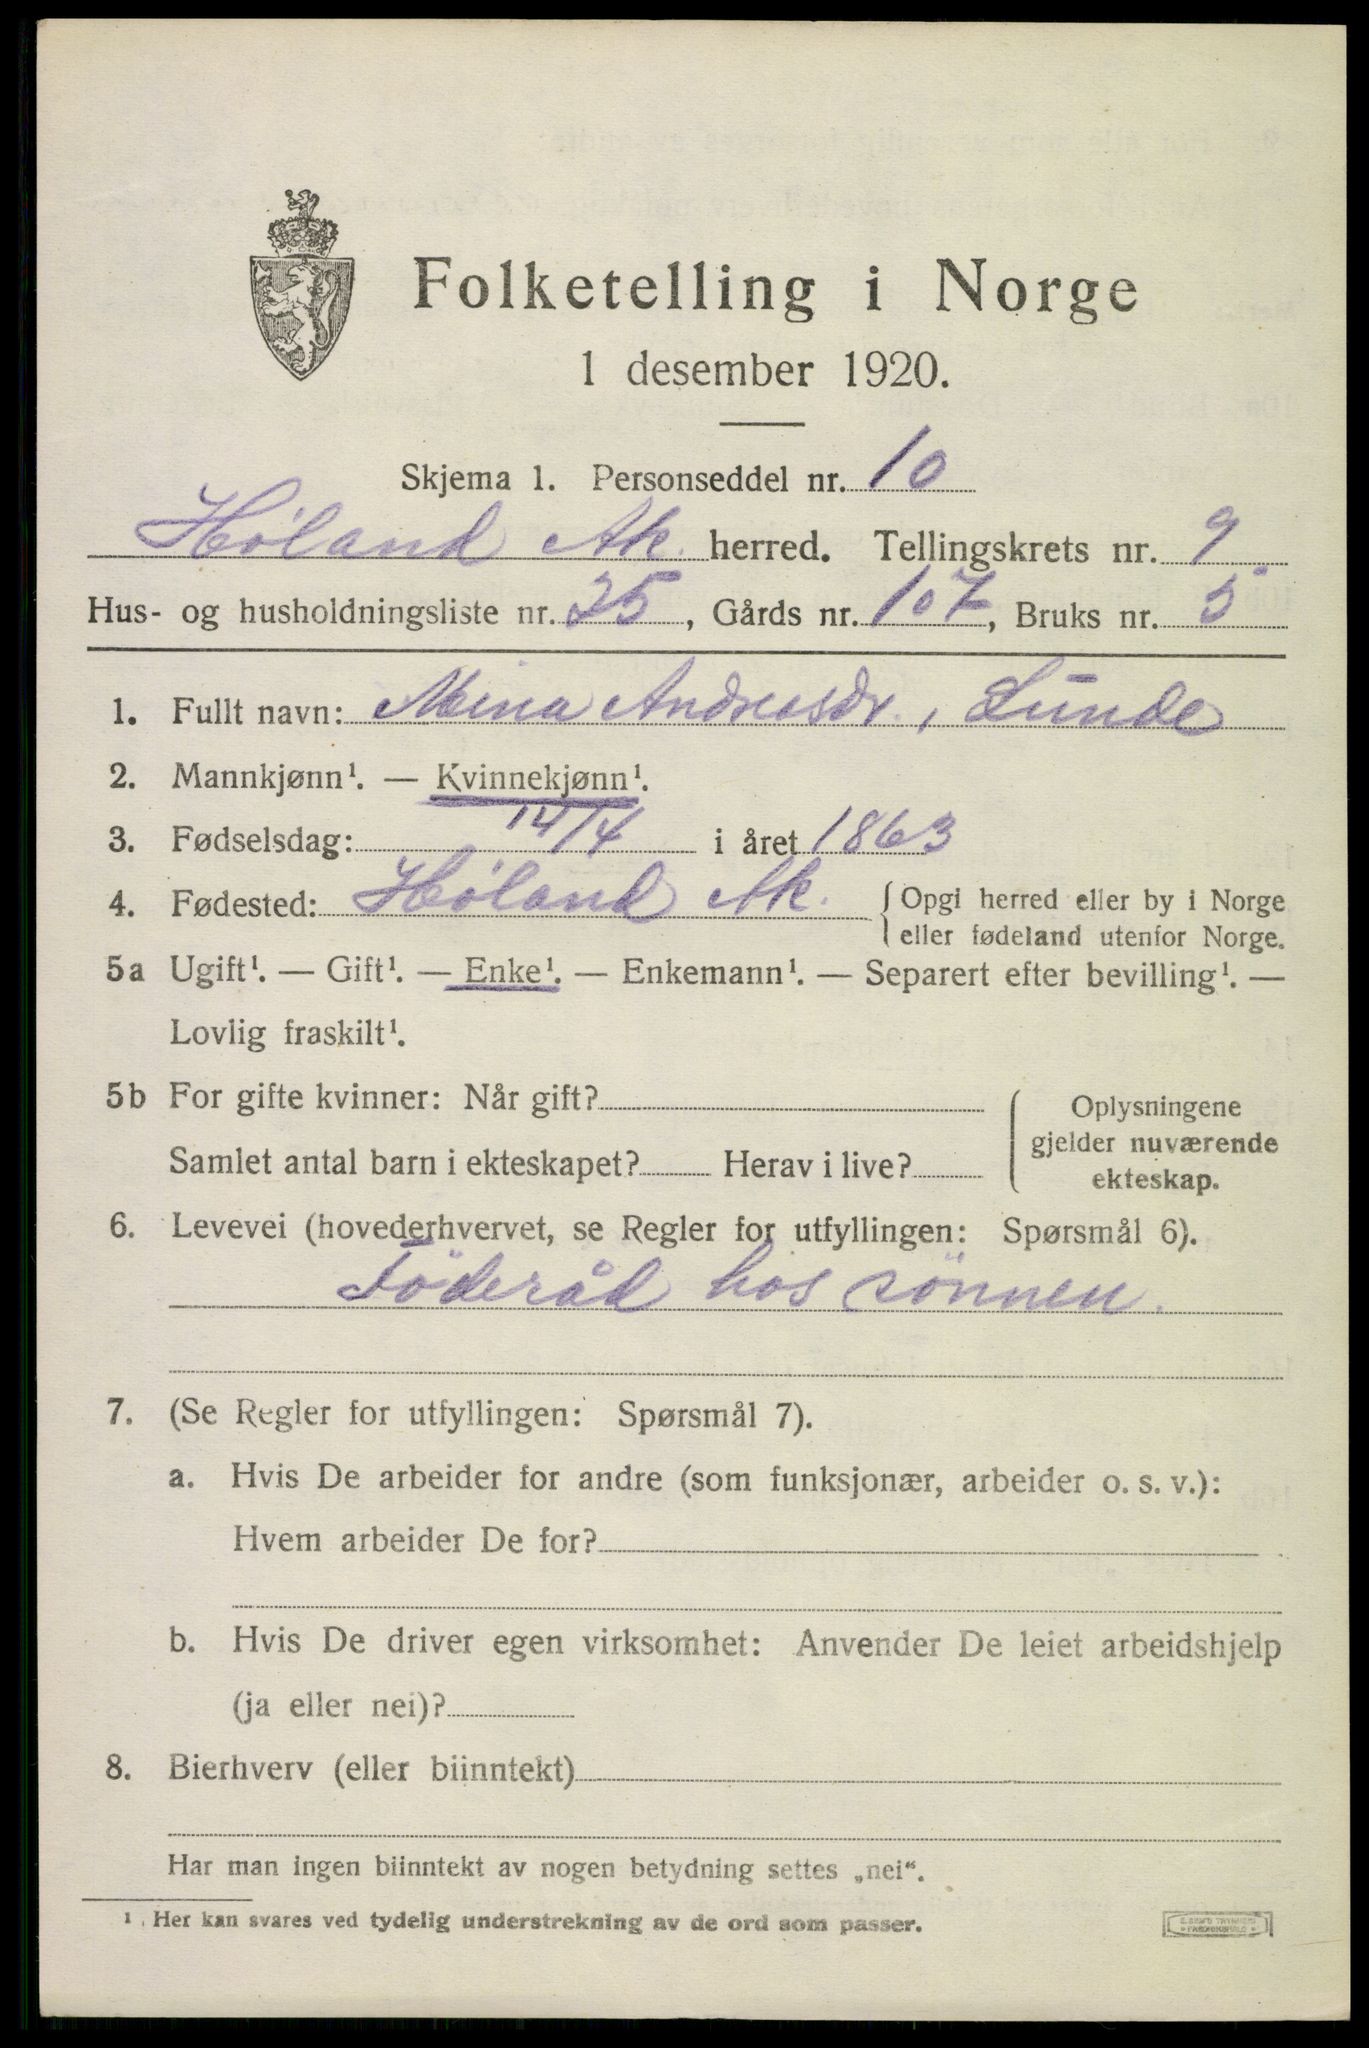 Folketelling i Norge
1 desember 1920.
Skjema 1. Personseddel nr. 10
Høland Ak. herred. Tellingskrets nr. 9
Hus- og husholdningsliste nr. 25, Gårds nr. 107, Bruks nr. 5
1. Fullt navn: Mina Andreasdr., Lunde
2. Mannkjønn¹. — Kvinnekjønn¹.
3. Fødselsdag: 14/4 i året 1863
4. Fødested: Høland Ak. { Opgi herred eller by i Norge
eller fødeland utenfor Norge.
5a Ugift¹. — Gift¹. — Enke¹. — Enkemann¹. — Separert efter bevilling¹. —
Lovlig fraskilt¹.
5b For gifte kvinner: Når gift?
Samlet antal barn i ekteskapet? Herav i live?
Oplysningene
gjelder nuværende
ekteskap.
6. Levevei (hovederhvervet, se Regler for utfyllingen: Spørsmål 6).
Föderåd hos sönnen.
7. (Se Regler for utfyllingen: Spørsmål 7).
a. Hvis De arbeider for andre (som funksjonær, arbeider o. s. v.):
Hvem arbeider De for?
b. Hvis De driver egen virksomhet: Anvender De leiet arbeidshjelp
(ja eller nei)?
8. Bierhverv (eller biinntekt)
Har man ingen biinntekt av nogen betydning settes „nei“.
¹ Her kan svares ved tydelig understrekning av de ord som passer.